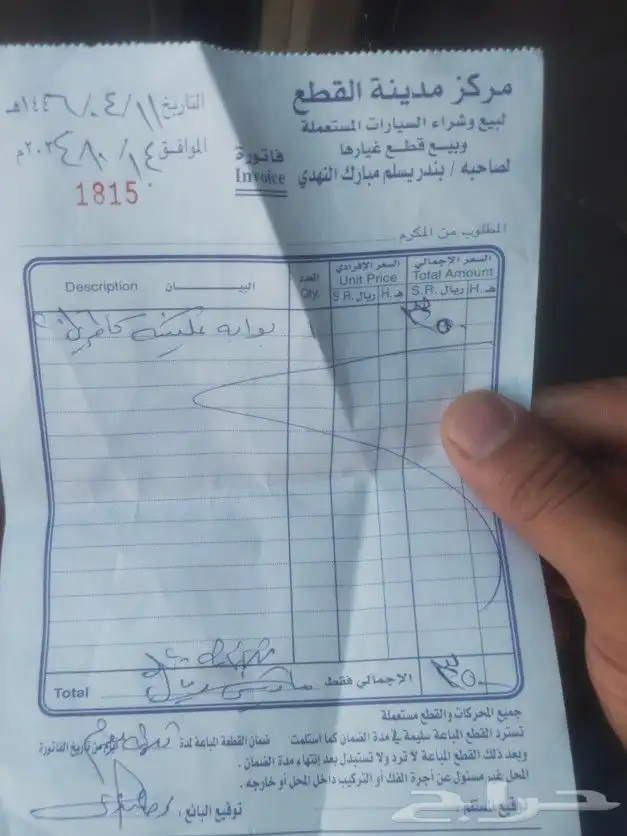 مركز مدينة القطع
لبيع وشراء السيارات المستعملة
وبيع قطع غيارها
لصاحبه / بندر يسلم مبارك النهدي
فاتورة
Invoice
التاريخ ١١ / ٤ / ١٤٤٦هـ
الموافق ١٤ / ١٠ / ٢٠٢٤م
1815
المطلوب من المكرم
السعر الإجمالي السعر الإفرادي العدد البيـــان
Total Amount Unit Price Qty. Description
هـ .H ريال .S.R هـ .H ريال .S.R
الإجمالي فقط
Total
جميع المحركات والقطع مستعملة
تسترد القطع المباعة سليمة في مدة الضمان كما استلمت ضمان القطعة المباعة لمدة من تاريخ الفاتورة
وبعد ذلك القطع المباعة لا ترد ولا تستبدل بعد إنتهاء مدة الضمان .
المحل غير مسئول عن أجرة الفك أو التركيب داخل المحل أو خارجه .
توقيع المستلم : توقيع البائع :
حراج